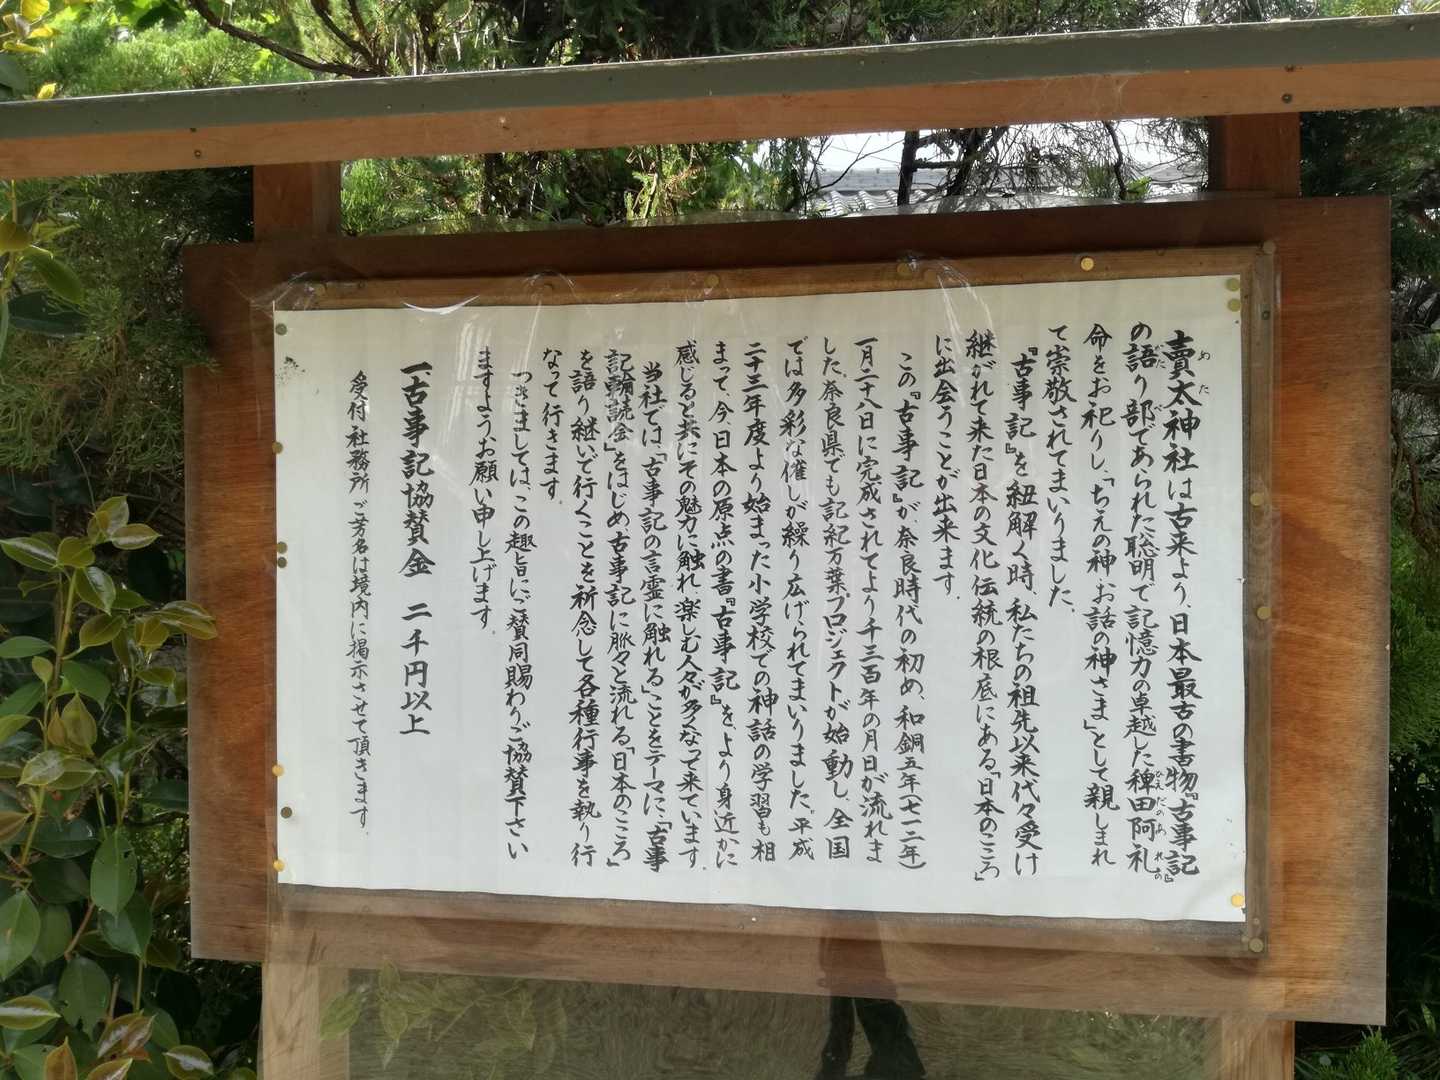 賣太神社は古来より、日本最古の書物『古事記』
の語り部であられた聡明で記憶力の卓越した稗田阿礼
命をお祀りし、「ちえの神・お話の神さま」として親しまれ
て崇敬されてまいりました。
『古事記』を紐解く時、私たちの祖先以来代々受け
継がれて来た日本の文化伝統の根底にある「日本のこころ」
に出会うことが出来ます。
この『古事記』が、奈良時代の初め、和銅五年(七一二年)
一月二十八日に完成されてより千三百年の月日が流れま
した。奈良県でも記紀万葉プロジェクトが始動し、全国
では多彩な催しが繰り広げられてまいりました。平成
二十三年度より始まった小学校での神話の学習も相
まって、今、日本の原点の書『古事記』をより身近かに
感じると共にその魅力に触れ、楽しむ人々が多くなって来ています。
当社では、「古事記の言霊に触れる」ことをテーマに、「古事
記輪読会」をはじめ、古事記に脈々と流れる「日本のこころ」
を語り継いで行くことを祈念して各種行事を執り行
なって行きます。
つきましては、この趣旨にご賛同賜わりご協賛下さい
ますようお願い申し上げます。
一古事記協賛金 二千円以上
受付 社務所 ご芳名は境内に掲示させて頂きます。